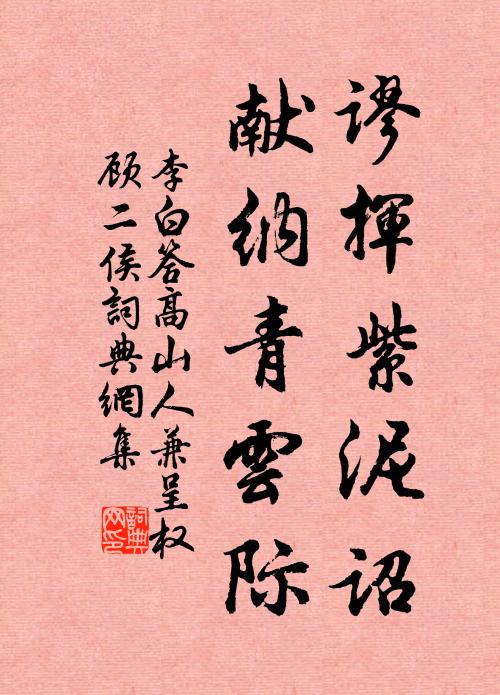 谬揮紫泥詔
献纳青雲际
李白答高山人兼呈权
顾二侯詞典網集
詞典网印